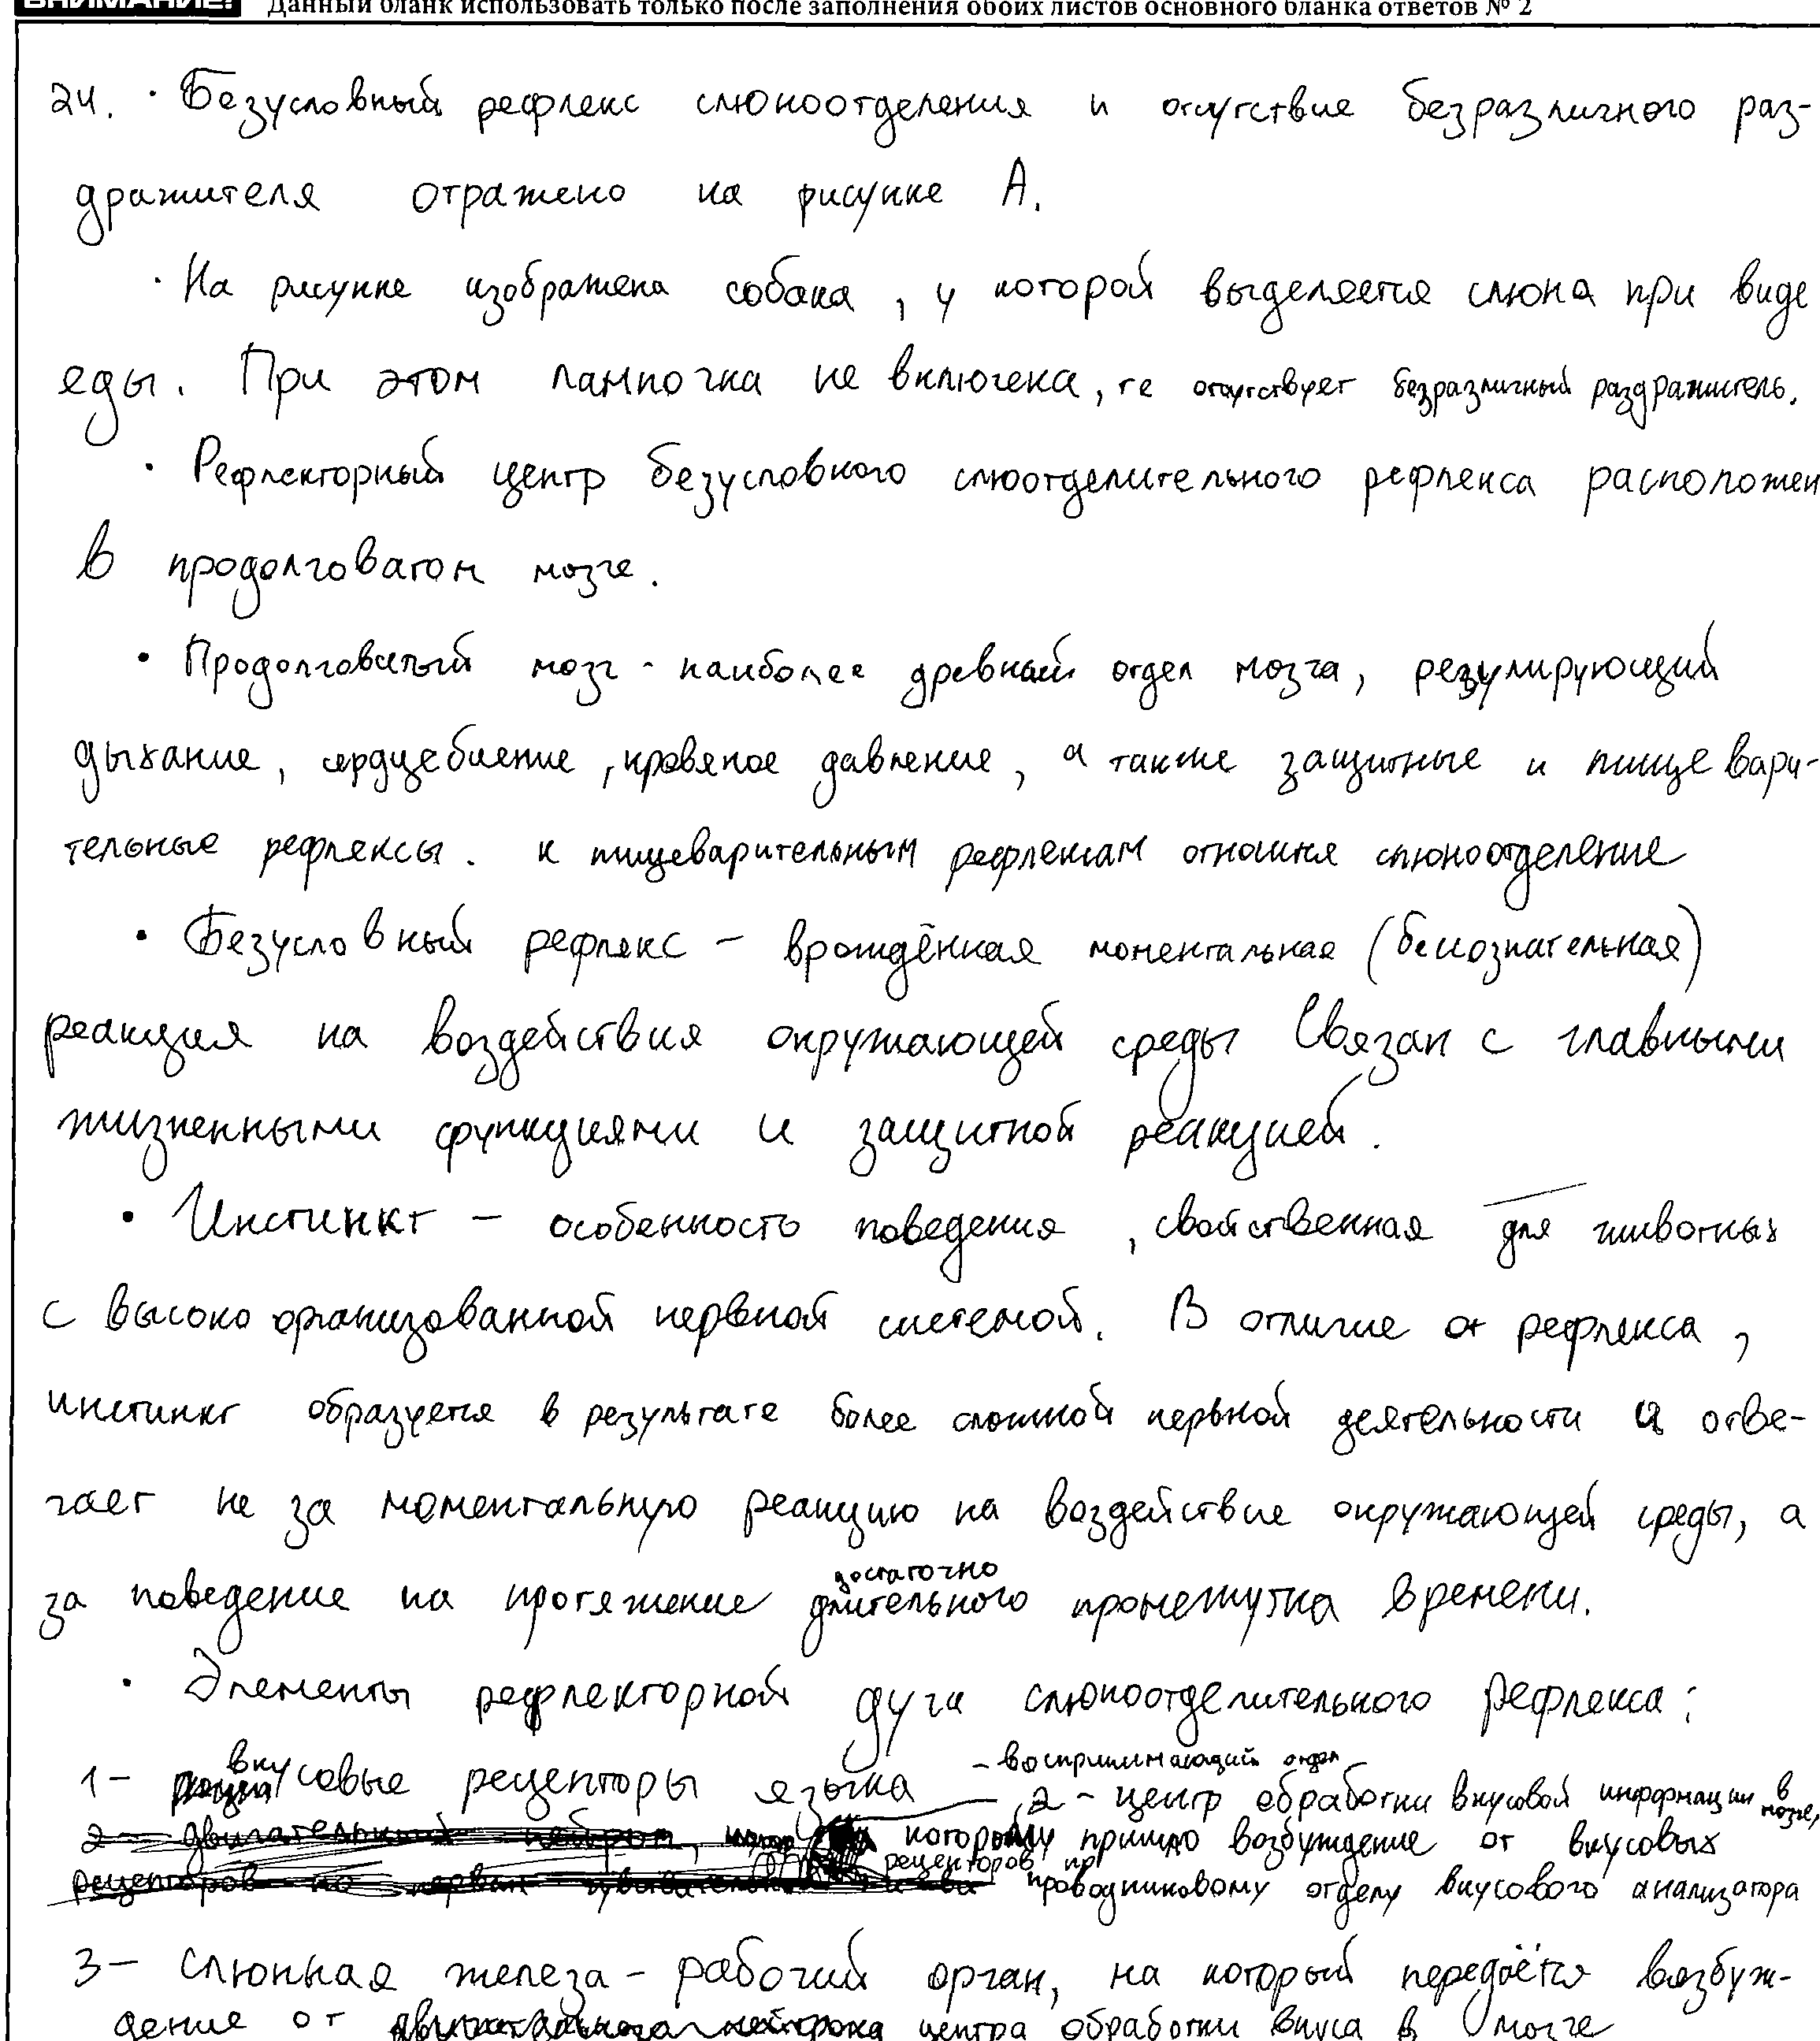 ВНИМАНИЕ! Данный бланк использовать только после заполнения обоих листов основного бланка ответов № 2
24. · Безусловный рефлекс слюноотделения и отсутствие безразличного раз-
дражителя отражено на рисунке А.
· На рисунке изображена собака, у которой выделяется слюна при виде
еды. При этом лампочка не включена, те отсутствует безразличный раздражитель.
· Рефлекторный центр безусловного слюоотделительного рефлекса расположен
в продолговатом мозге.
· Продолговатый мозг - наиболее древний отдел мозга, регулирующий
дыхание, сердцебиение, кровяное давление, а также защитные и пищевари-
тельные рефлексы. К пищеварительным рефлексам относится слюноотделение
· Безусловный рефлекс – врождённая моментальная (бессознательная)
реакция на воздействия окружающей среды Связан с главными
жизненными функциями и защитной реакцией.
· Инстинкт – особенность поведения, свойственная для животных
с высоко организованной нервной системой. В отличие от рефлекса,
инстинкт образуется в результате более сложной нервной деятельности и отве-
чает не за моментальную реакцию на воздействие окружающей среды, а
за поведение на протяжение достаточно длительного промежутка времени.
· Элементы рефлекторной дуга слюноотделительного рефлекса:
1 – вкусовые рецепторы языка – воспринимающий отдел
2 - центр обработки вкусовой информации в мозге,
которому пришло возбуждение от вкусовых
рецепторов по проводниковому отделу вкусового анализатора
3 – слюнная железа - рабочий орган, на который передаётся возбуж-
дение от центра обработки вкуса в мозге